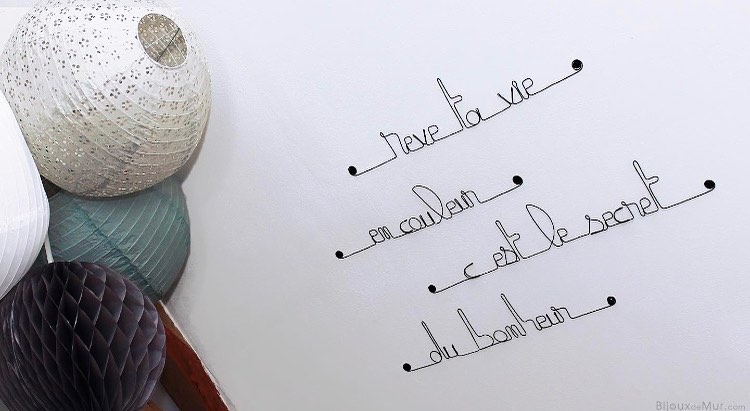 reve ta vie
en couleur
c est le secret
du bonheur
BijouxdeMur.com